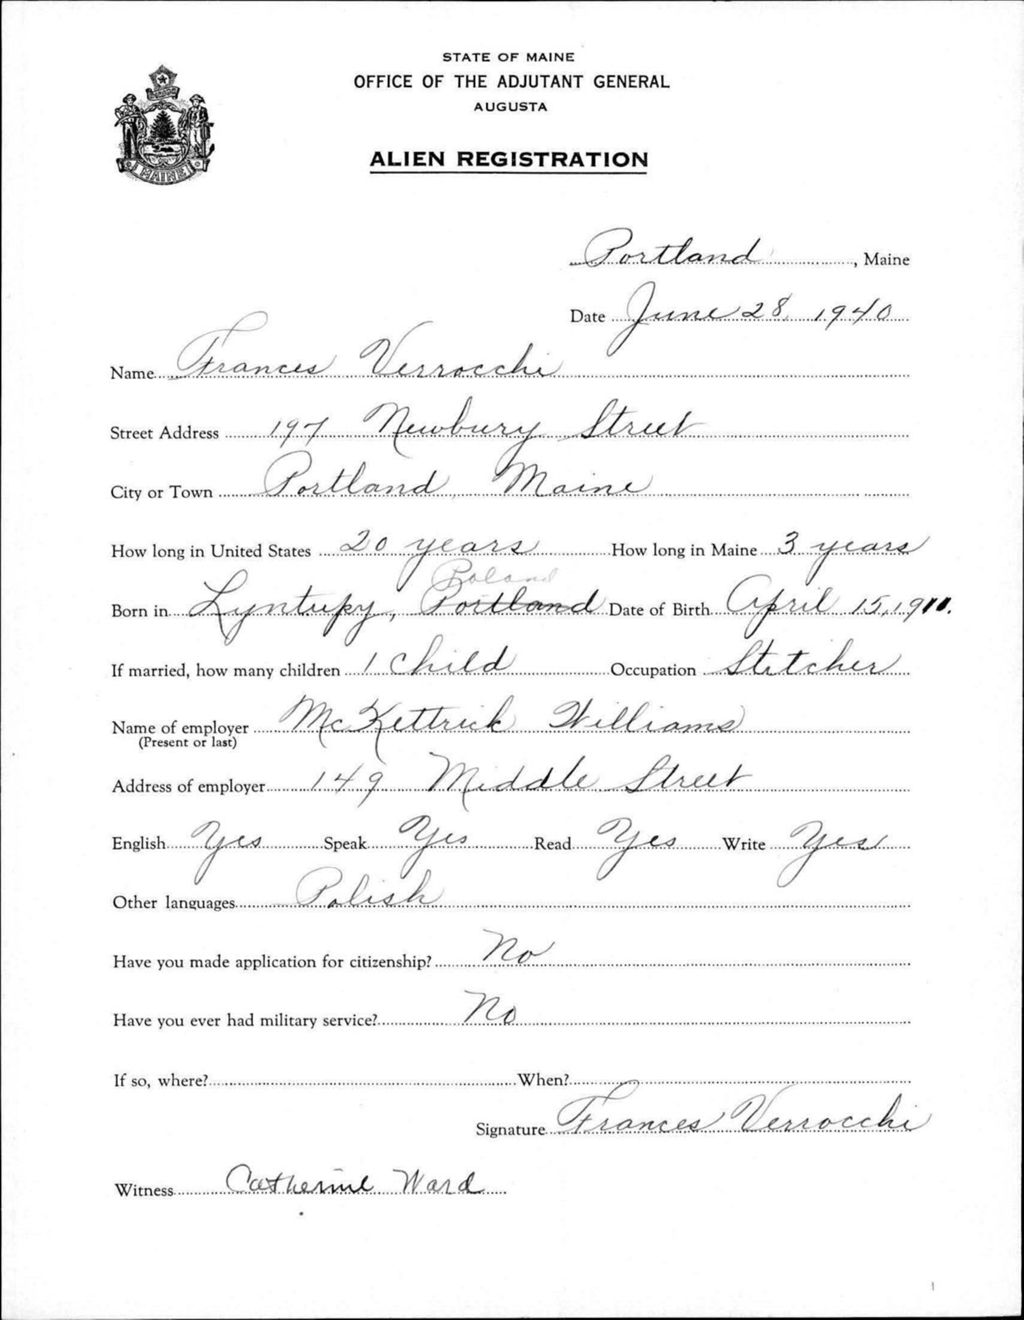 STATE OF MAINE
OFFICE OF THE ADJUTANT GENERAL
AUGUSTA
ALIEN REGISTRATION
MAINE
Portland, Maine
Date June 28, 1940
Name Frances Verrocchi
Street Address 197 Newbury Street
City or Town Portland, Maine
How long in United States 20 years How long in Maine 3 years
Poland
Born in Lyntupy, Portland Date of Birth April 15, 1911.
If married, how many children 1 child Occupation Stitcher
Name of employer McKettrick Williams
(Present or last)
Address of employer 149 Middle Street
English Yes Speak Yes Read Yes Write Yes
Other languages Polish
Have you made application for citizenship? No
Have you ever had military service? No
If so, where? When?
Signature Frances Verrocchi
Witness Catherine Ward